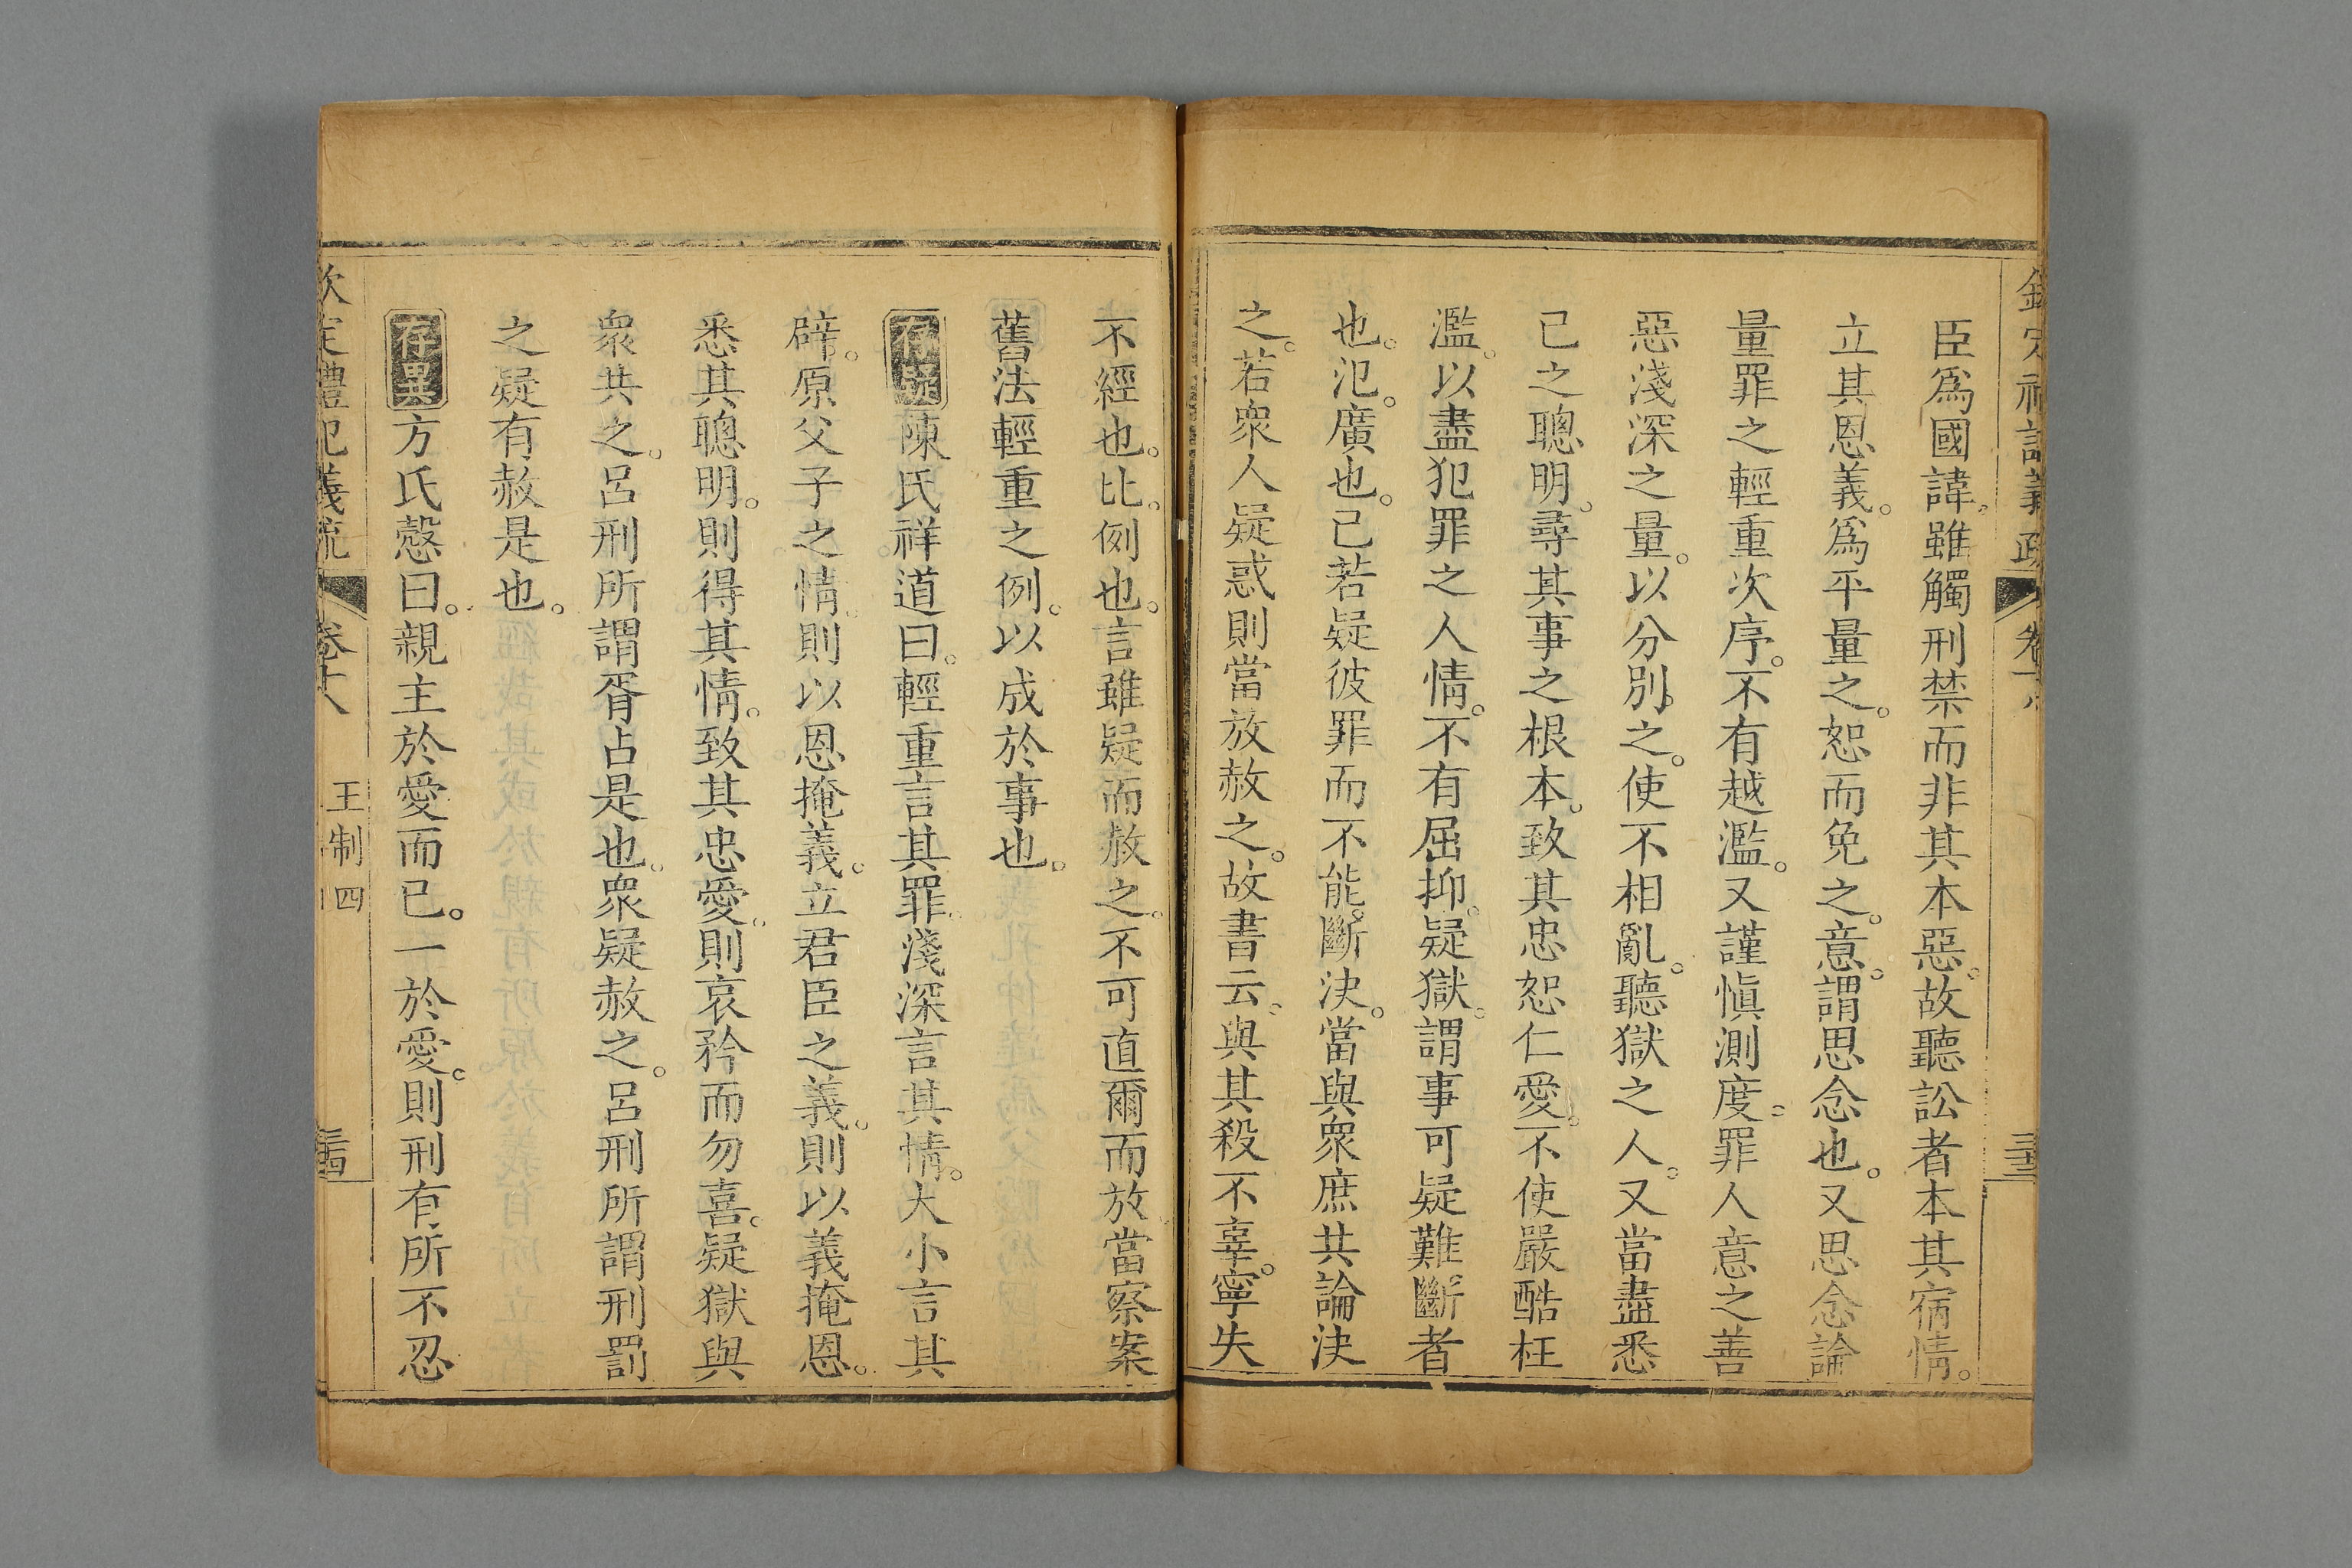 臣爲國諱。雖觸刑禁而非其本惡。故聽訟者本其宿情。
立其恩義。爲平量之。恕而免之。意。謂思念也。又思念論
量罪之輕重次序。不有越濫。又謹愼測度。罪人意之善
惡淺深之量。以分別之。使不相亂。聽獄之人。又當盡悉
己之聰明。尋其事之根本。致其忠恕仁愛。不使嚴酷枉
濫。以盡犯罪之人情。不有屈抑。疑獄。謂事可疑難斷者
也。氾。廣也。己若疑彼罪而不能斷決。當與衆庶共論決
之。若衆人疑惑則當放赦之。故書云。與其殺不辜。寧失
不經也。比。例也。言雖疑而赦之。不可直爾而放當察案
舊法輕重之例。以成於事也。
存疑陳氏祥道曰。輕重言其罪。淺深言其情。大小言其
辟。原父子之情。則以恩掩義。立君臣之義。則以義掩恩。
悉其聰明。則得其情。致其忠愛。則哀矜而勿喜。疑獄與
衆共之。呂刑所謂胥占是也。衆疑赦之。呂刑所謂刑罰
之疑有赦是也。
存異方氏慤曰。親主於愛而已。一於愛。則刑有所不忍
欽定禮記義疏 卷十八 王制四